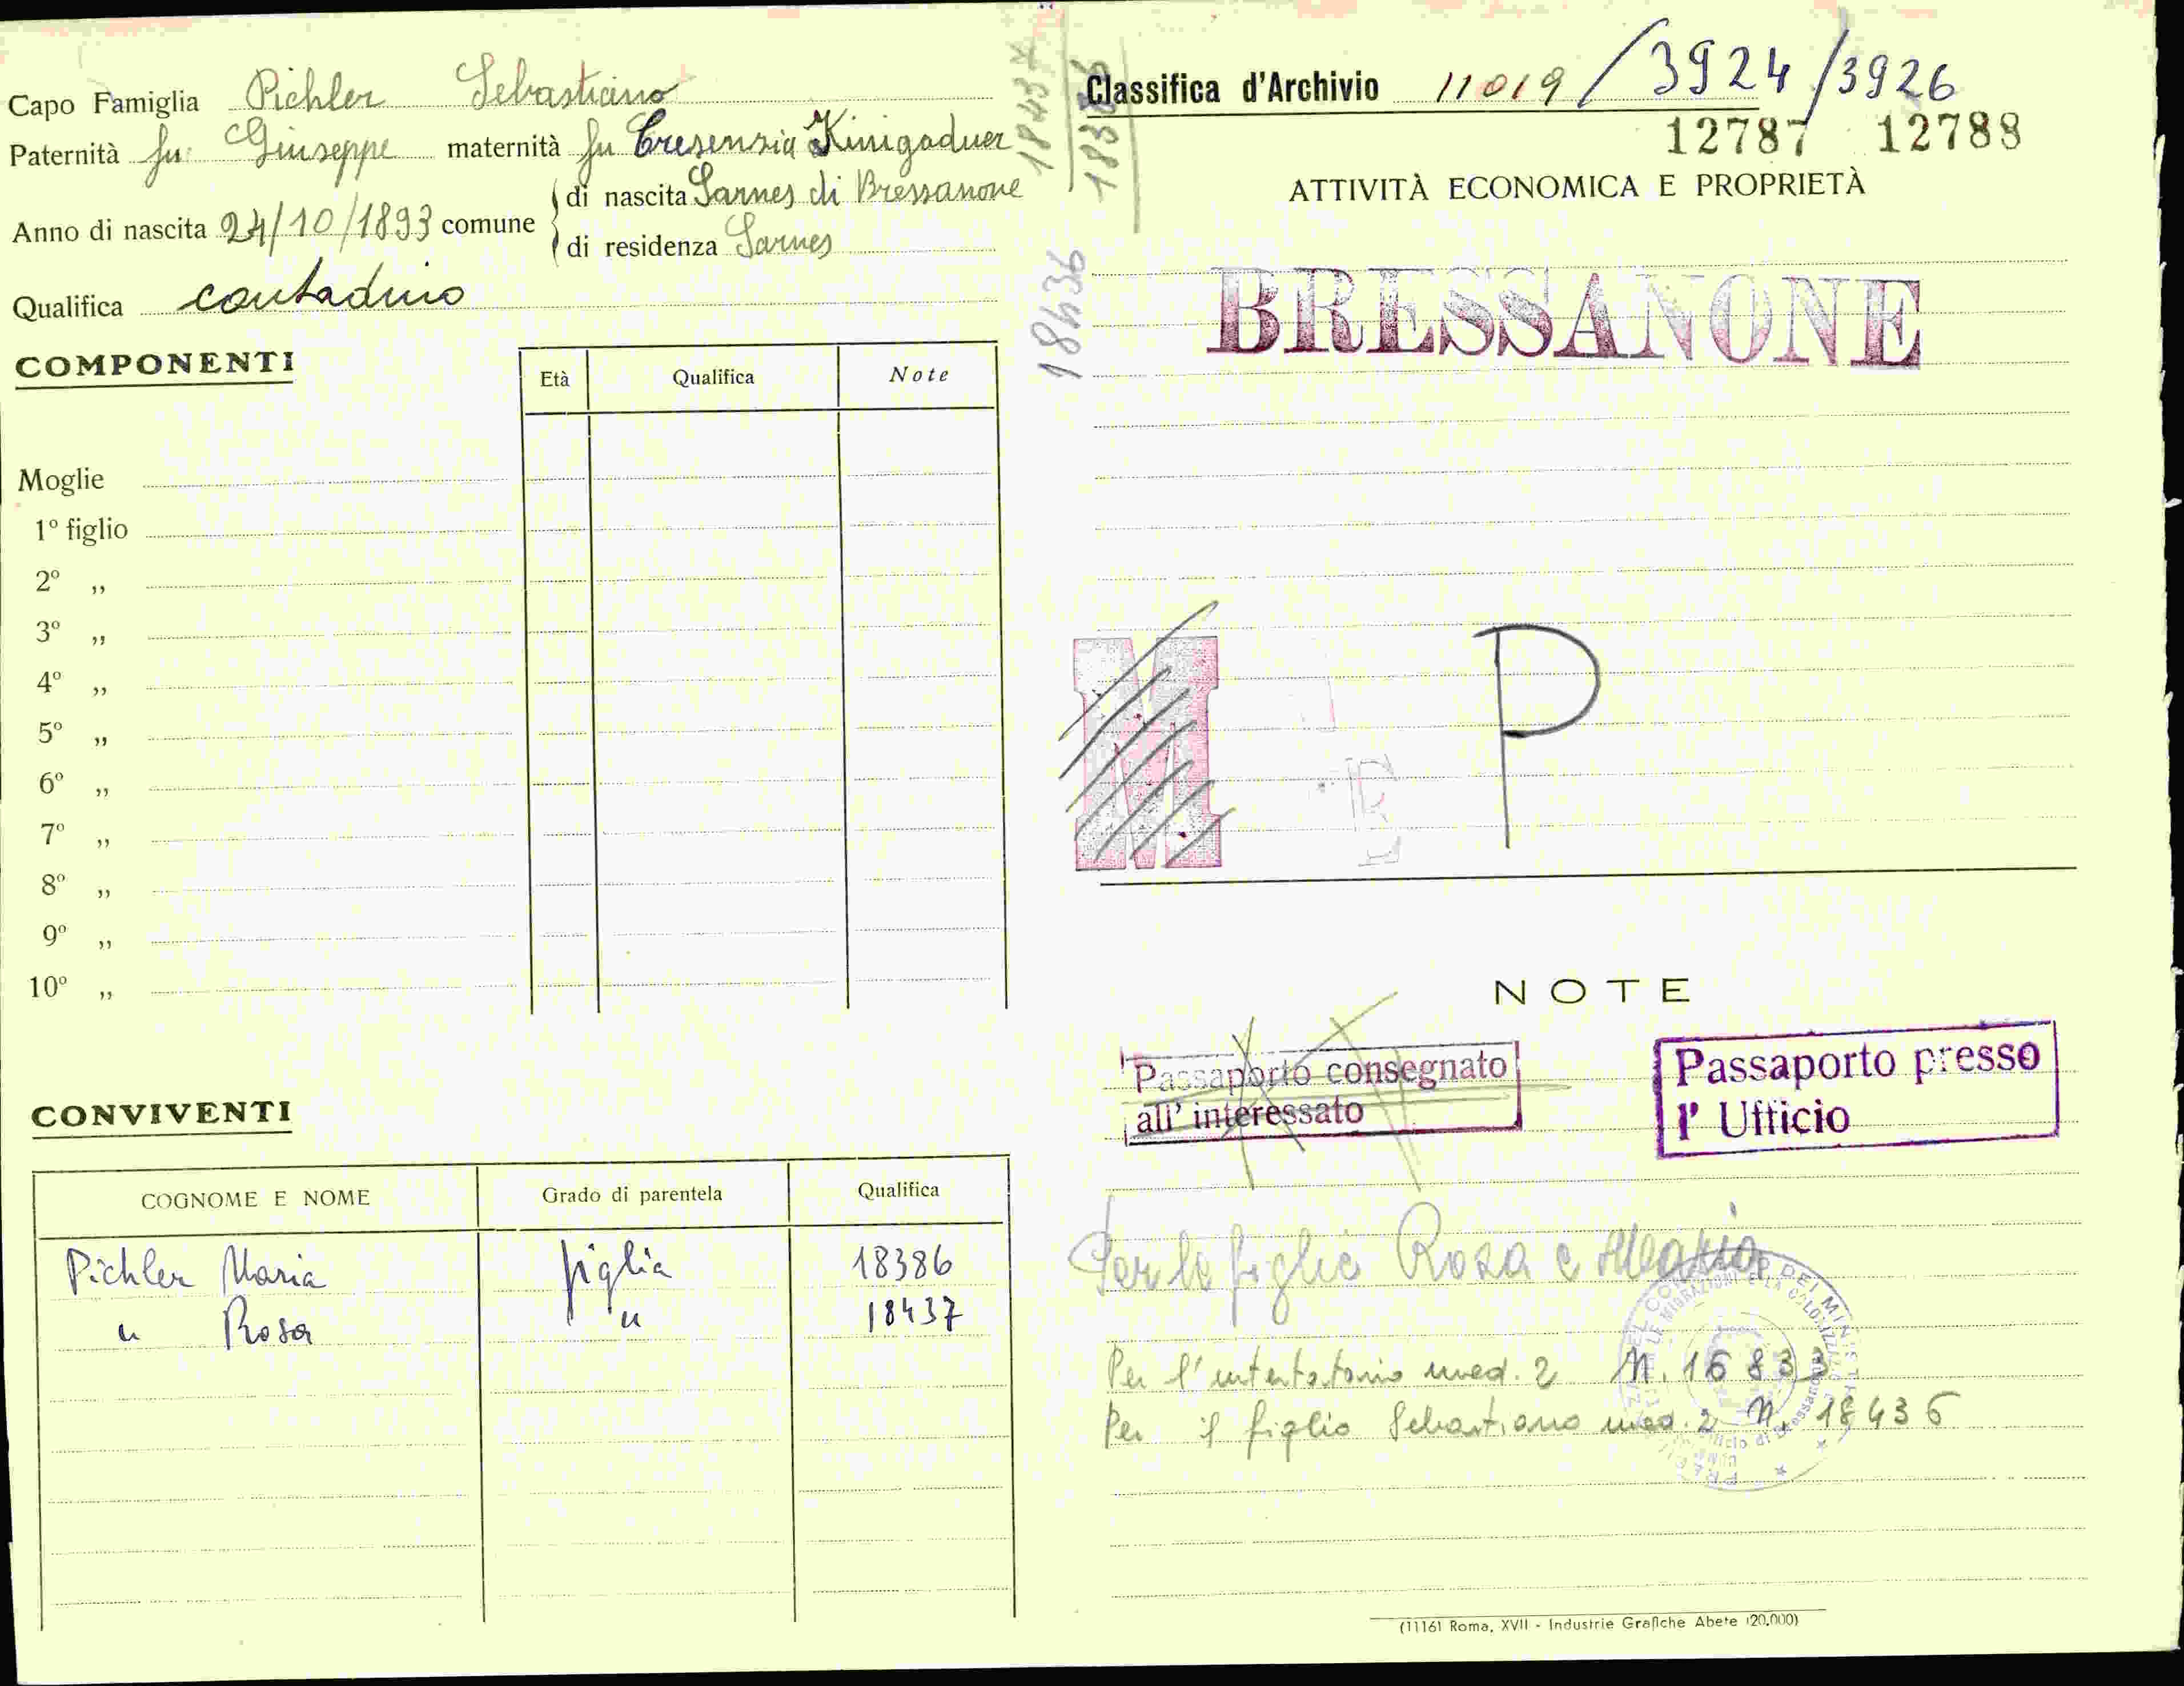 Capo Famiglia Pichler Sebastiano
Paternità fu Giuseppe maternità fu Cresenzia Kinigadner
Anno di nascita 24/10/1893 comune
di nascita Sarnes di Bressanone
di residenza Sarnes
Qualifica contadino
COMPONENTI
Età Qualifica Note
Moglie
1º figlio
2º „
3º „
4º „
5º „
6º „
7º „
8º „
9º „
10º „
CONVIVENTI
COGNOME E NOME Grado di parentela Qualifica
Pichler Maria figlia 18386
" Rosa " 18437
18437
18386
18436
Classifica d'Archivio 11019/3924/3926
12787 12788
ATTIVITÀ ECONOMICA E PROPRIETÀ
BRESSANONE
M P
E
NOTE
Passaporto consegnato
all' interessato
Passaporto presso
l' Ufficio
Per le figlie Rosa e Maria
Per l'intestatario mod. 2 N. 16833
Per il figlio Sebastiano mod. 2 N. 18436
(1116) Roma, XVII - Industrie Grafiche Abete (20.000)